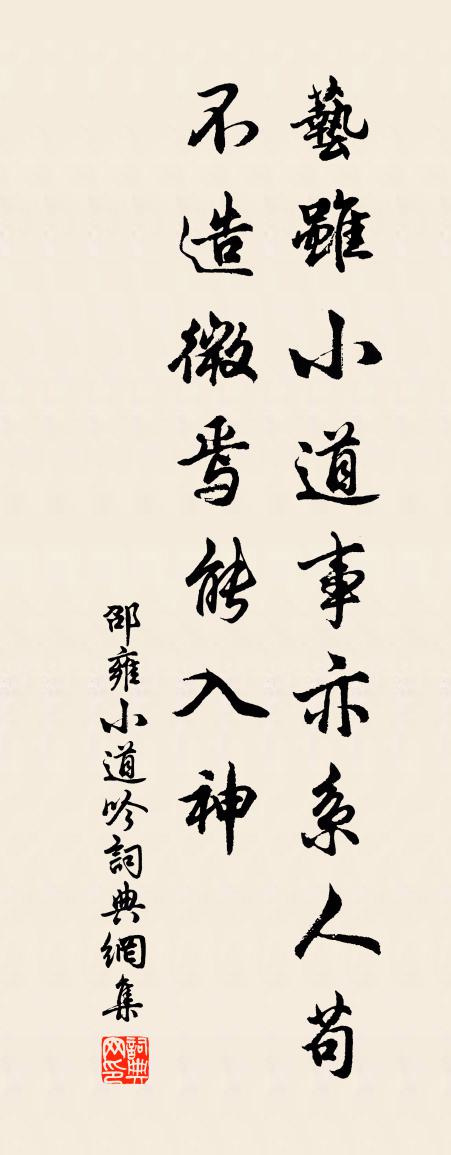 藝雖小道事亦系人苟
不造微焉能入神
邵雍小道吟詞典網集
詞典网印